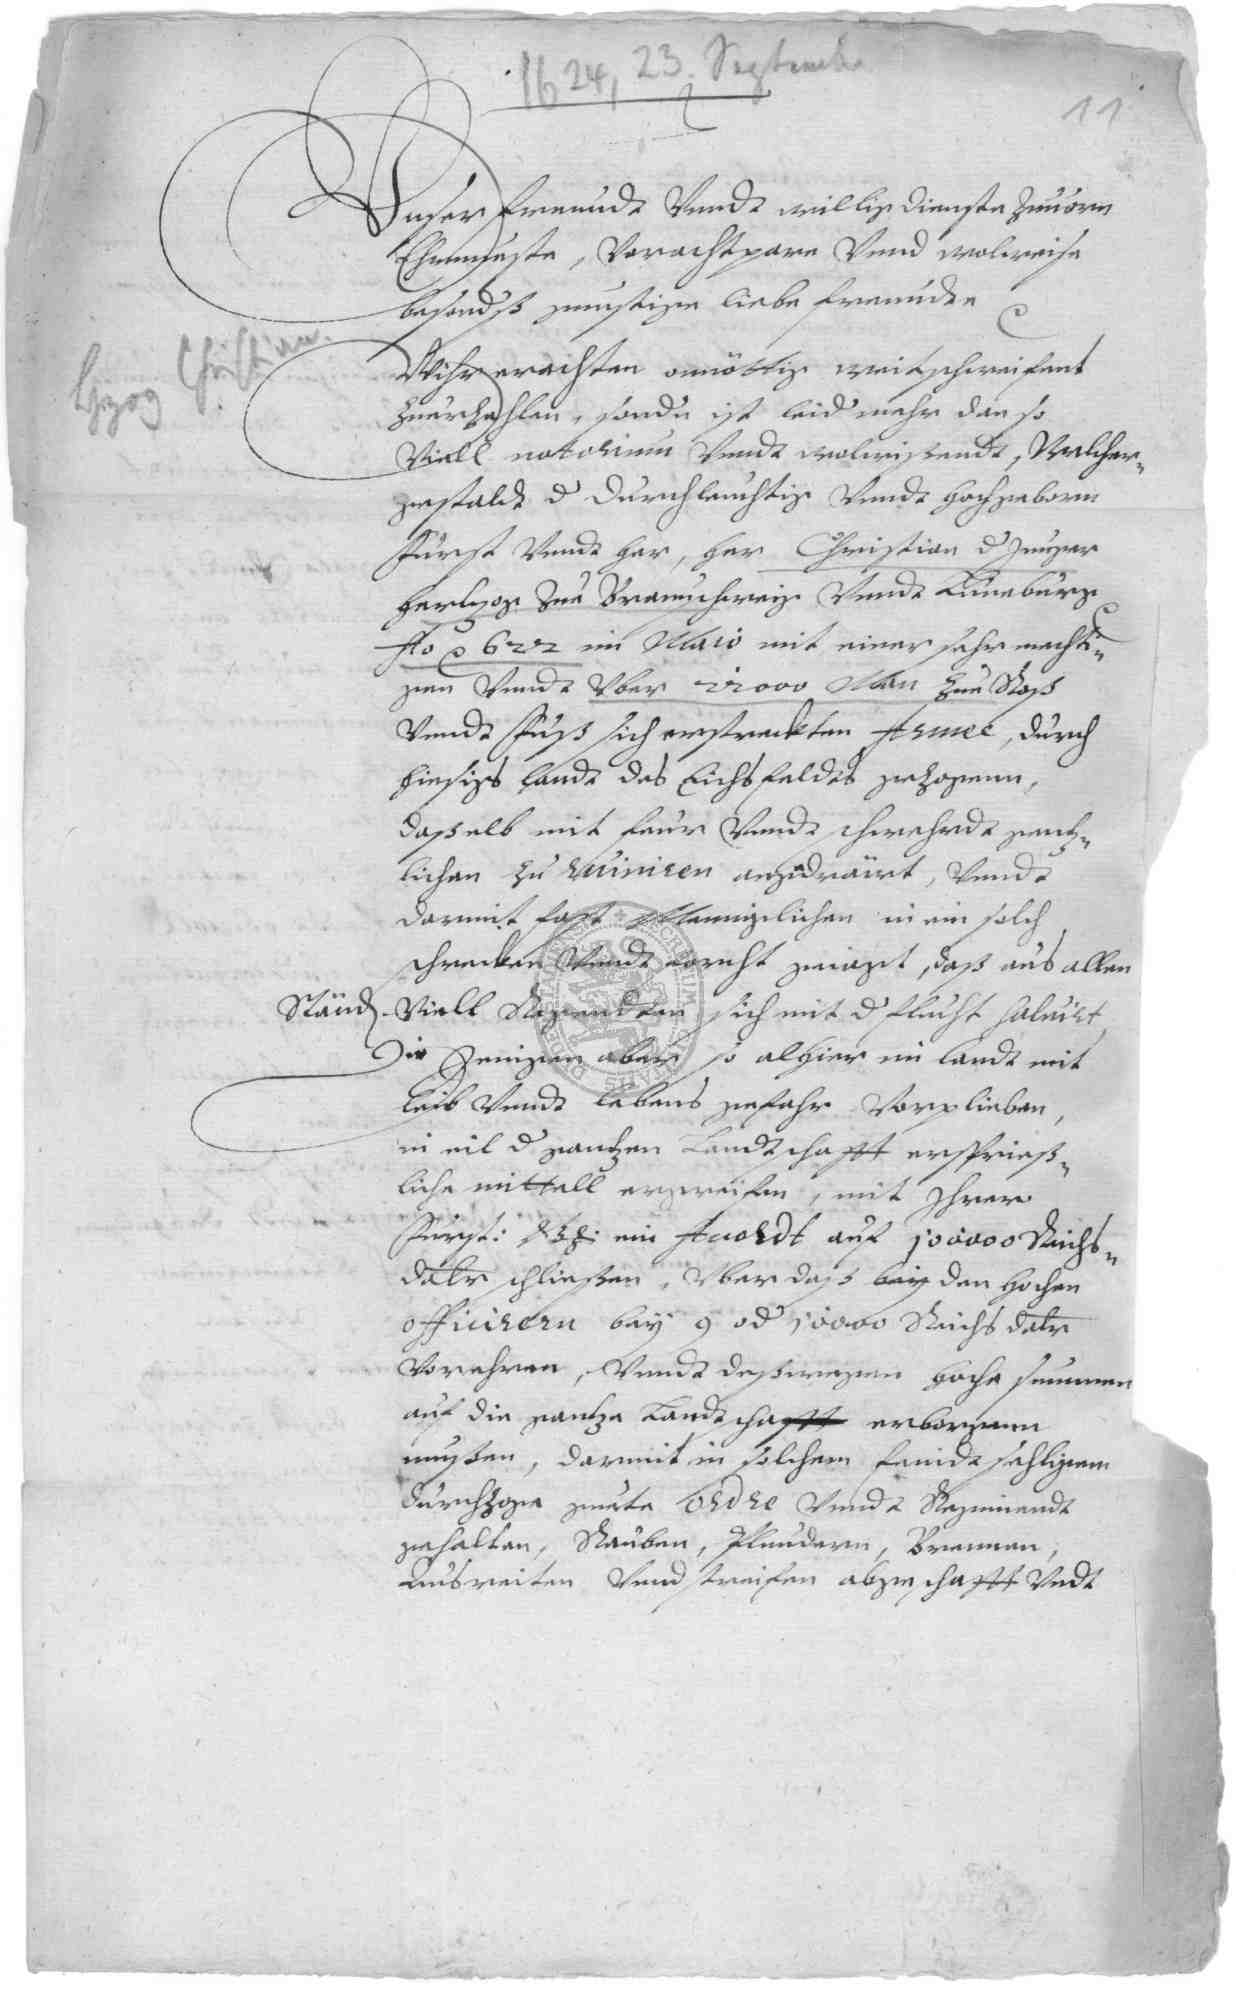 1624, 23. Septembr
11
Unser freundt Vundt willig dienste zuuorn
Ehrnueste, Vorachtpare Vund wolweise
besonders gunstige liebe freunde
Herzog Christian.
Wihr erachten onnöttig weitschweifent
zuerzehlen, sondn ist leid mehr dan so
Viell notorium Vundt wolwissendt, Welcher-
gestaldt d Durchleuchtig Vundt Hochgeborn
Fürst Vundt Her, Her Christian d Junger
Herzog zue Braunschweig Vundt Lüneburg
Ao 622 im Maio mit einer sehr mechti-
gen Vundt Vber 22000 Man zue Roß
Vundt Fuß sich erstreckten Armee, durch
hiesigs landt des Eichsfeldts gezogenn,
dasselb mit feur Vundt schwehrdt gentz-
lichen zu ruiniren angedräut, Vundt
darmit fast Menniglichen in ein solch
schrecken Vundt forcht geiagt, das aus allen
Ständ. Viell sich mit d flucht saluirt,
Die Jenigen aber so alhier im landt mit
leib Vundt lebens gefahr Vorplieben,
in eil d gantzen Landtschafft ersprieß-
liche mittell ergreifen, mit Ihrer
Fürst: G: ein Accordt auf 100000 Reichs-
dalr schließen, Vber daß bey den Hochen
officirern bey 9 od 10000 Reichs dalr
Vorehren, Vundt deßwegen hoche summen
auf die gantze Landtschafft erborgenn
mußen, darmit in solchem feindtsehligem
durchzoge guete ordre Vundt Regimendt
gehalten, Rauben, Plundern, Brennen,
Ausreiten Vund streifen abgeschafft Vndt